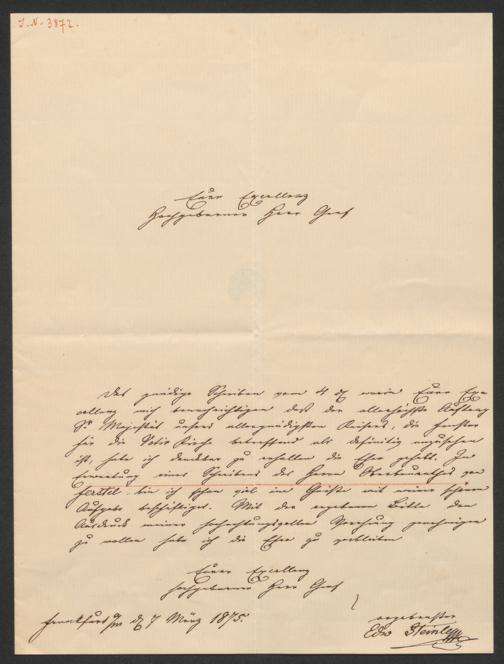 J. N. 3972.
Euer Excellenz
Hochgeborener Herr Graf
Das gnädige Schreiben vom 4 d. worin Euer Exc
cellenz mich benachrichtigen daß der allerhöchste Auftrag
Sr Majestät unsers allergnädigsten Kaisers, die Fenster
für die Votiv Kirche betreffend als definitiv anzusehen
ist, habe ich dankbar zu erhalten die Ehre gehabt. In
Erwartung eines Schreibens des Herrn Oberbaurathes von
Ferstel bin ich schon viel im Geiste mit meiner schönen
Aufgabe beschäftiget. Mit der ergebenen Bitte den
Ausdruck meiner hochachtungsvollen Verehrung genehmigen
zu wollen habe ich die Ehre zu verbleiben
Euer Excellenz
hochgeborener Herr Graf
Frankfurt a/m d. 7 März 1875.
ergebenster
Edw Steinle